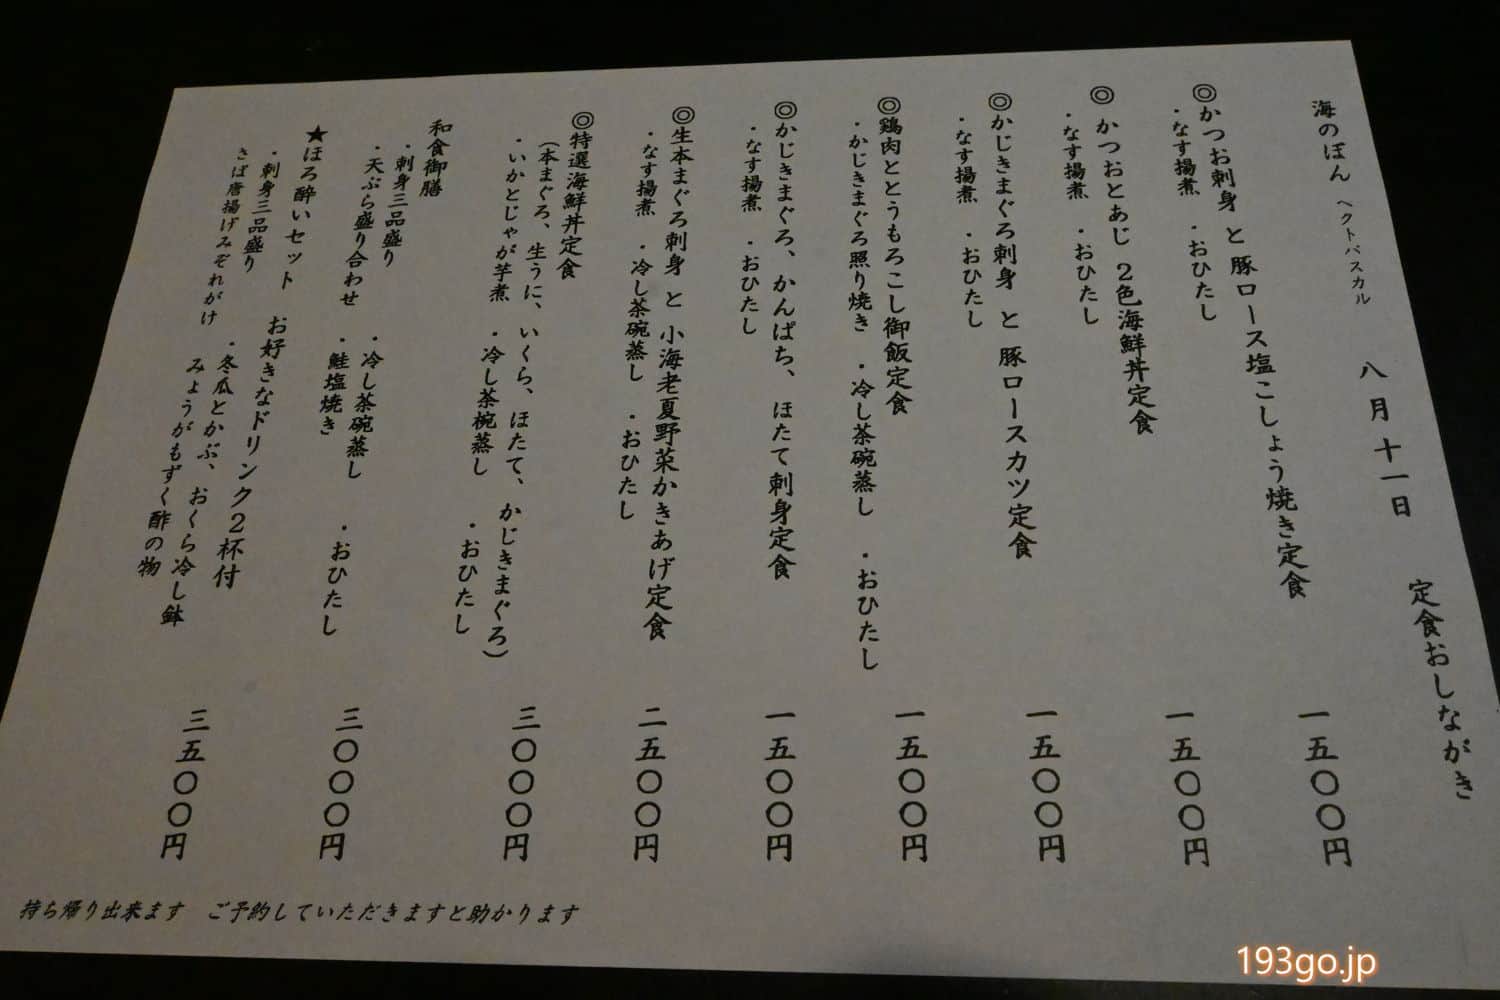 海のぼん ヘクトパスカル 八月十一日 定食おしながき
◎かつお刺身 と 豚ロース塩こしょう焼き定食 一五〇〇円
・なす揚煮 ・おひたし
◎かつおとあじ 2色海鮮丼定食 一五〇〇円
・なす揚煮 ・おひたし
◎かじきまぐろ刺身 と 豚ロースカツ定食 一五〇〇円
・なす揚煮 ・おひたし
◎鶏肉ととうもろこし御飯定食 一五〇〇円
・かじきまぐろ照り焼き ・冷し茶碗蒸し ・おひたし
◎かじきまぐろ、かんぱち、ほたて刺身定食 一五〇〇円
・なす揚煮 ・おひたし
◎生本まぐろ刺身 と 小海老夏野菜かきあげ定食 二五〇〇円
・なす揚煮 ・冷し茶碗蒸し ・おひたし
◎特選海鮮丼定食
(本まぐろ、生うに、いくら、ほたて、かじきまぐろ) 三〇〇〇円
・いかとじゃが芋煮 ・冷し茶椀蒸し ・おひたし
和食御膳
・刺身三品盛り ・冷し茶碗蒸し 三〇〇〇円
・天ぷら盛り合わせ ・鮭塩焼き ・おひたし
★ほろ酔いセット お好きなドリンク2杯付
・刺身三品盛り ・冬瓜とかぶ、おくら冷し鉢 三五〇〇円
さば唐揚げみぞれがけ みょうがもずく酢の物
持ち帰り出来ます ご予約していただきますと助かります
193go.jp